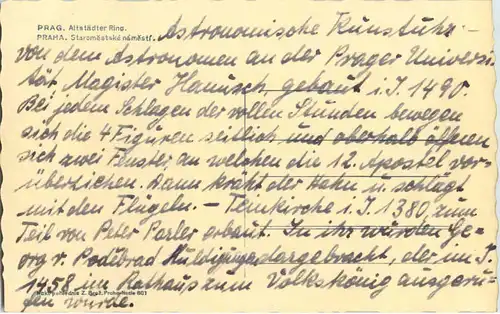 PRAG. Altstädter Ring.
PRAHA. Staroměstské náměstí.
Astronomische Kunstuhr:
von dem Astronomen an der Prager Universi-
tät, Magister Hanusch, gebaut i. J. 1490.
Bei jedem Schlagen der vollen Stunden bewegen
sich die 4 Figuren seitlich und oberhalb öffnen
sich zwei Fenster an welchen die 12. Apostel vor-
überziehen. Dann kräht der Hahn u. schlägt
mit den Flügeln. – Teinkirche i. J. 1380, zum
Teil von Peter Parler erbaut. In ihr wurden Ge-
org v. Podiebrad Huldigungen dargebracht, der im J.
1458 im Rathaus zum Volkskönig ausgeru-
fen wurde.